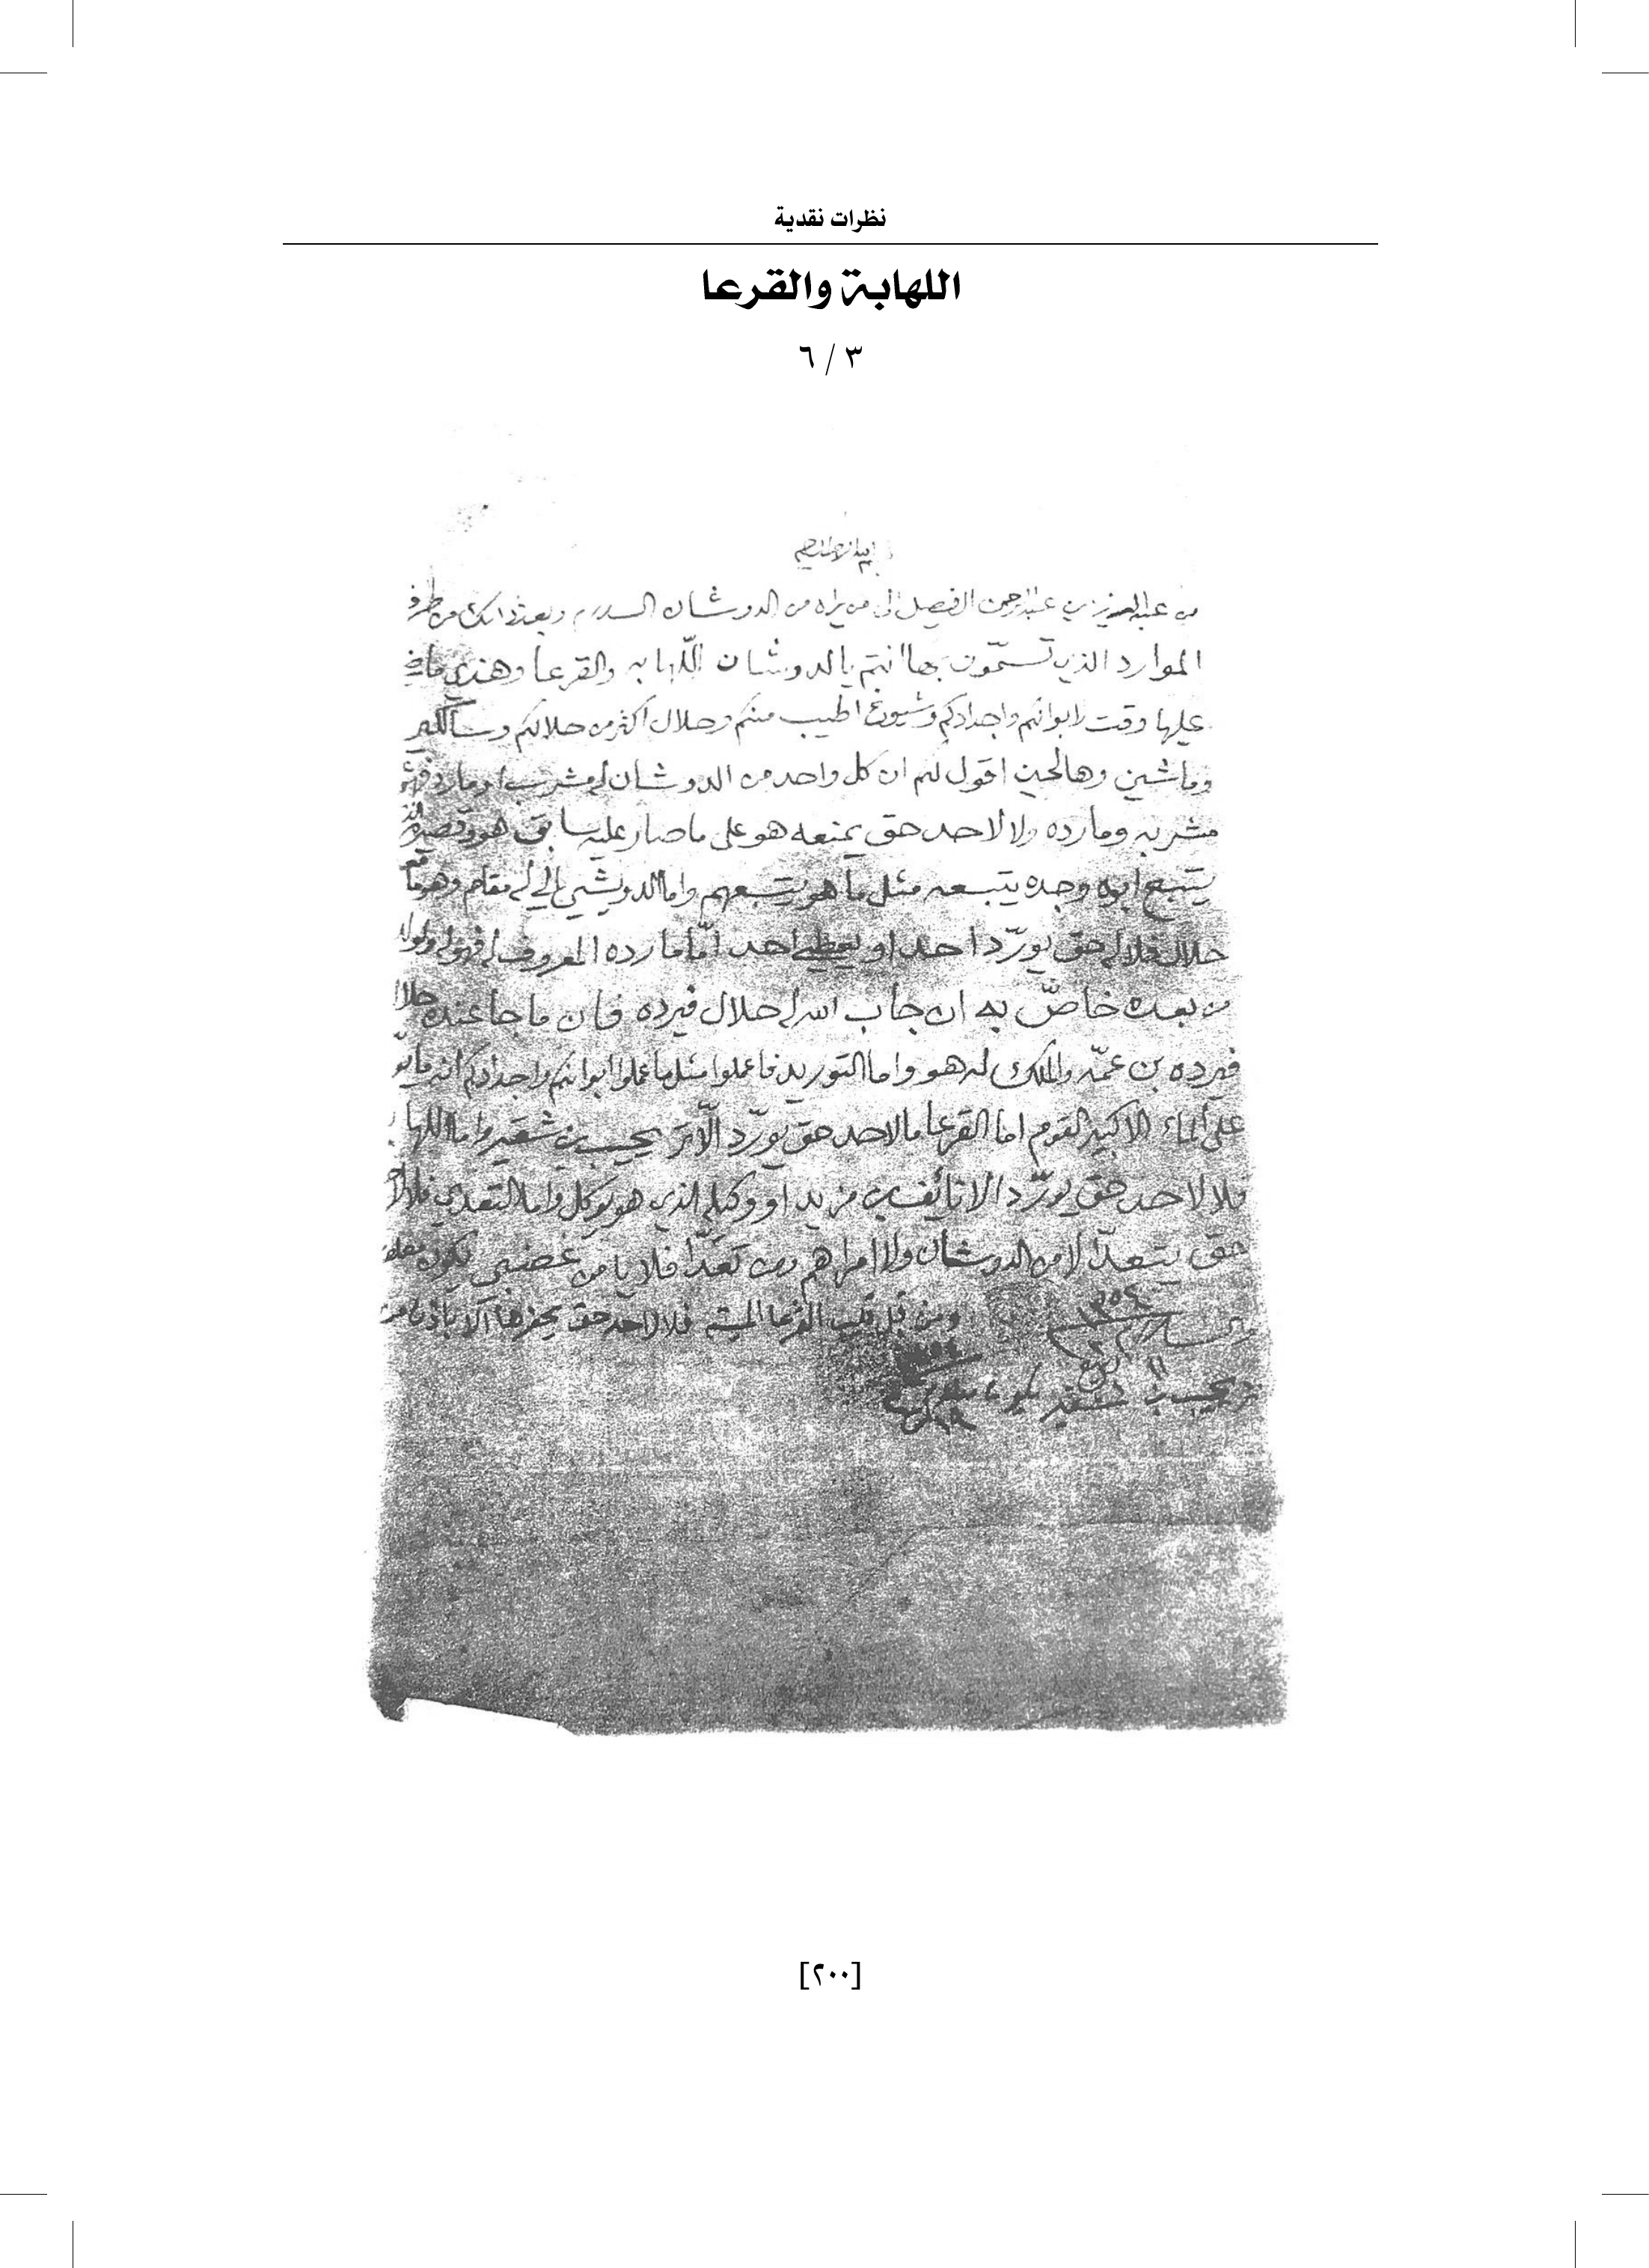 نظرات نقدية
اللهابة والقرعا
٣ / ٦
من عبدالعزيز بن عبدالرحمن الفيصل الى من يراه من الدوشان السلام وبعد من طرف
الموارد الذي تسمّون بها انتم يالدوشان اللّهابه والقرعا وهذي ماضي
عليها وقت لابوانكم واجدادكم وشيوخ اطيب منكم وحلال اكثر من حلالكم
وماشين وهالحين اقول لكم ان كل واحد من الدوشان له مشرب او مارد
مشربه ومارده ولا لاحد حق يمنعه هو على ما صار عليه سابق هو
يتبع ابوه وجده يتبعه مثل ما هو يتبعهم واما الدويشي الي له مقام وهو ما
حلال فلا له حق يورّد احد او يعطي احد امّا مارده المعروف له
من بعده خاصّ به ان جاب الله له حلال فيرده فان ما جا عنده حلال
فيرده بن عمّه والملك له هو واما التوريد فاعملوا مثل ما عملوا ابوانكم واجدادكم
على الماء الا كبير القوم اما القرعا ما لاحد حق يورّد الّا تريحيب بن شقير واما اللهابه
فلا لاحد حق يورّد الا نايف بن مزيد او وكيله الذي هو يوكل واما التعدي فلا لاحد
حق يتعدّا لا من الدوشان ولا امراهم ومن تعدّا فلا يامن غضبي يكون معلوم
والسلام ١٣٥٩ ومن قبل قلب القرعا الميته فلا لاحد حق يحفرها الا باذن من
تريحيب بن شقير
[٢٠٠]